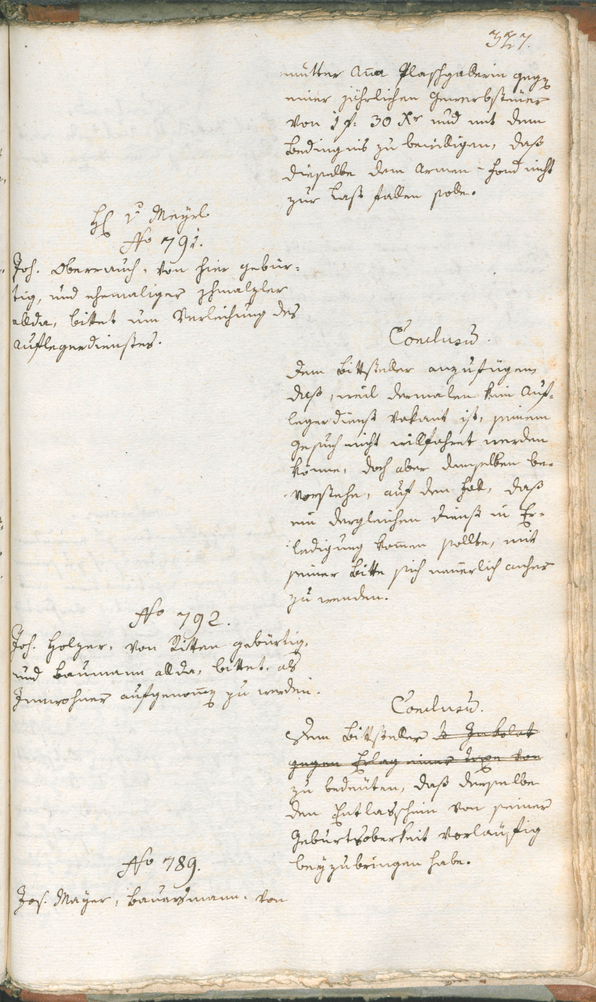 327.
mutter Aña Plaschgaderin gegen
einer jährlichen Gewerbsteuer
von 1 f: 30 Xr und mit dem
Bedingnis zu bewilligen, daß
dieselbe dem Armen-Fond nicht
zur Last fallen solle.
H v Meyrl
No 791.
Joh. Oberrauch, von hier gebür-
tig, und ehemaliger Schmalzler
allda, bittet um Verleihung des
Auflegerdienstes.
Conclusũ.
Dem Bittsteller anzufügen
daß, weil dermalen kein Auf-
legerdienst vakant ist, seinem
Gesuch nicht willfahret werden
könne, doch aber demselben be-
vorstehe, auf den Fall, daß
ein dergleichen Dienst in Er-
ledigung kom̄en sollte, mit
seiner Bitte sich neuerlich anher
zu wenden.
No 792.
Joh. Holzer, von Ritten gebürtig,
und Baumann allda, bittet, als
Innwohner aufgenom̄en zu werden.
Conclusũ.
Dem Bittsteller
gegen Erlag einer Taxe von
zu bedeuten, daß derselbe
den Entlasschein von seiner
Geburtsoberkeit vorläufig
beyzubringen habe.
No 789.
Jos. Mayer, Bauersmann, von